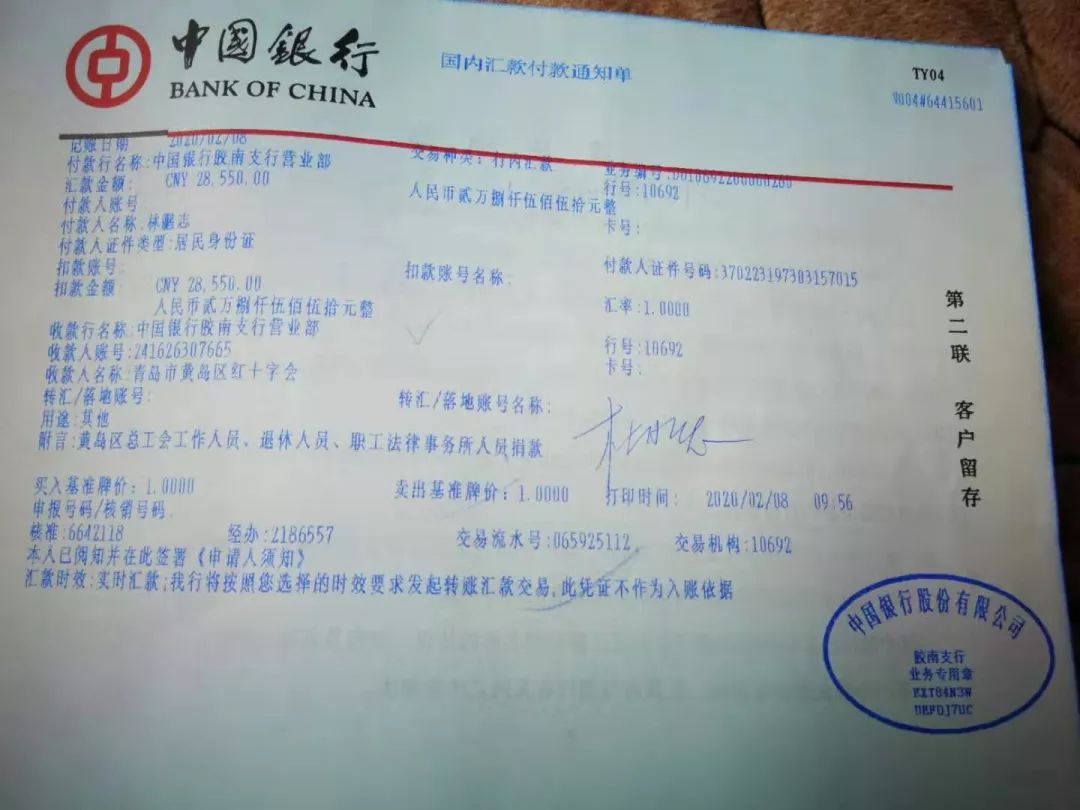 中國銀行
BANK OF CHINA
国内汇款付款通知单
TY04
记账日期 2020/02/08 交易种类:行内汇款 业务编号:
付款行名称:中国银行胶南支行营业部 行号:10692
汇款金额: CNY 28,550.00 人民币贰万捌仟伍佰伍拾元整
付款人账号 卡号:
付款人名称:林鹏志
付款人证件类型:居民身份证 付款人证件号码:370223197303157015
扣款账号 扣款账号名称:
扣款金额 CNY 28,550.00 汇率:1.0000
人民币贰万捌仟伍佰伍拾元整
收款行名称:中国银行胶南支行营业部 行号:10692
收款人账号:241626307665 卡号:
收款人名称:青岛市黄岛区红十字会
转汇/落地账号: 转汇/落地账号名称:
用途:其他
附言:黄岛区总工会工作人员、退休人员、职工法律事务所人员捐款
买入基准牌价:1.0000 卖出基准牌价:1.0000 打印时间: 2020/02/08 09:56
申报号码/核销号码
核准:6642118 经办:2186557 交易流水号:065925112 交易机构:10692
本人已阅知并在此签署《申请人须知》
汇款时效:实时汇款;我行将按照您选择的时效要求发起转账汇款交易,此凭证不作为入账依据
第二联 客户留存
中国银行股份有限公司
胶南支行
业务专用章